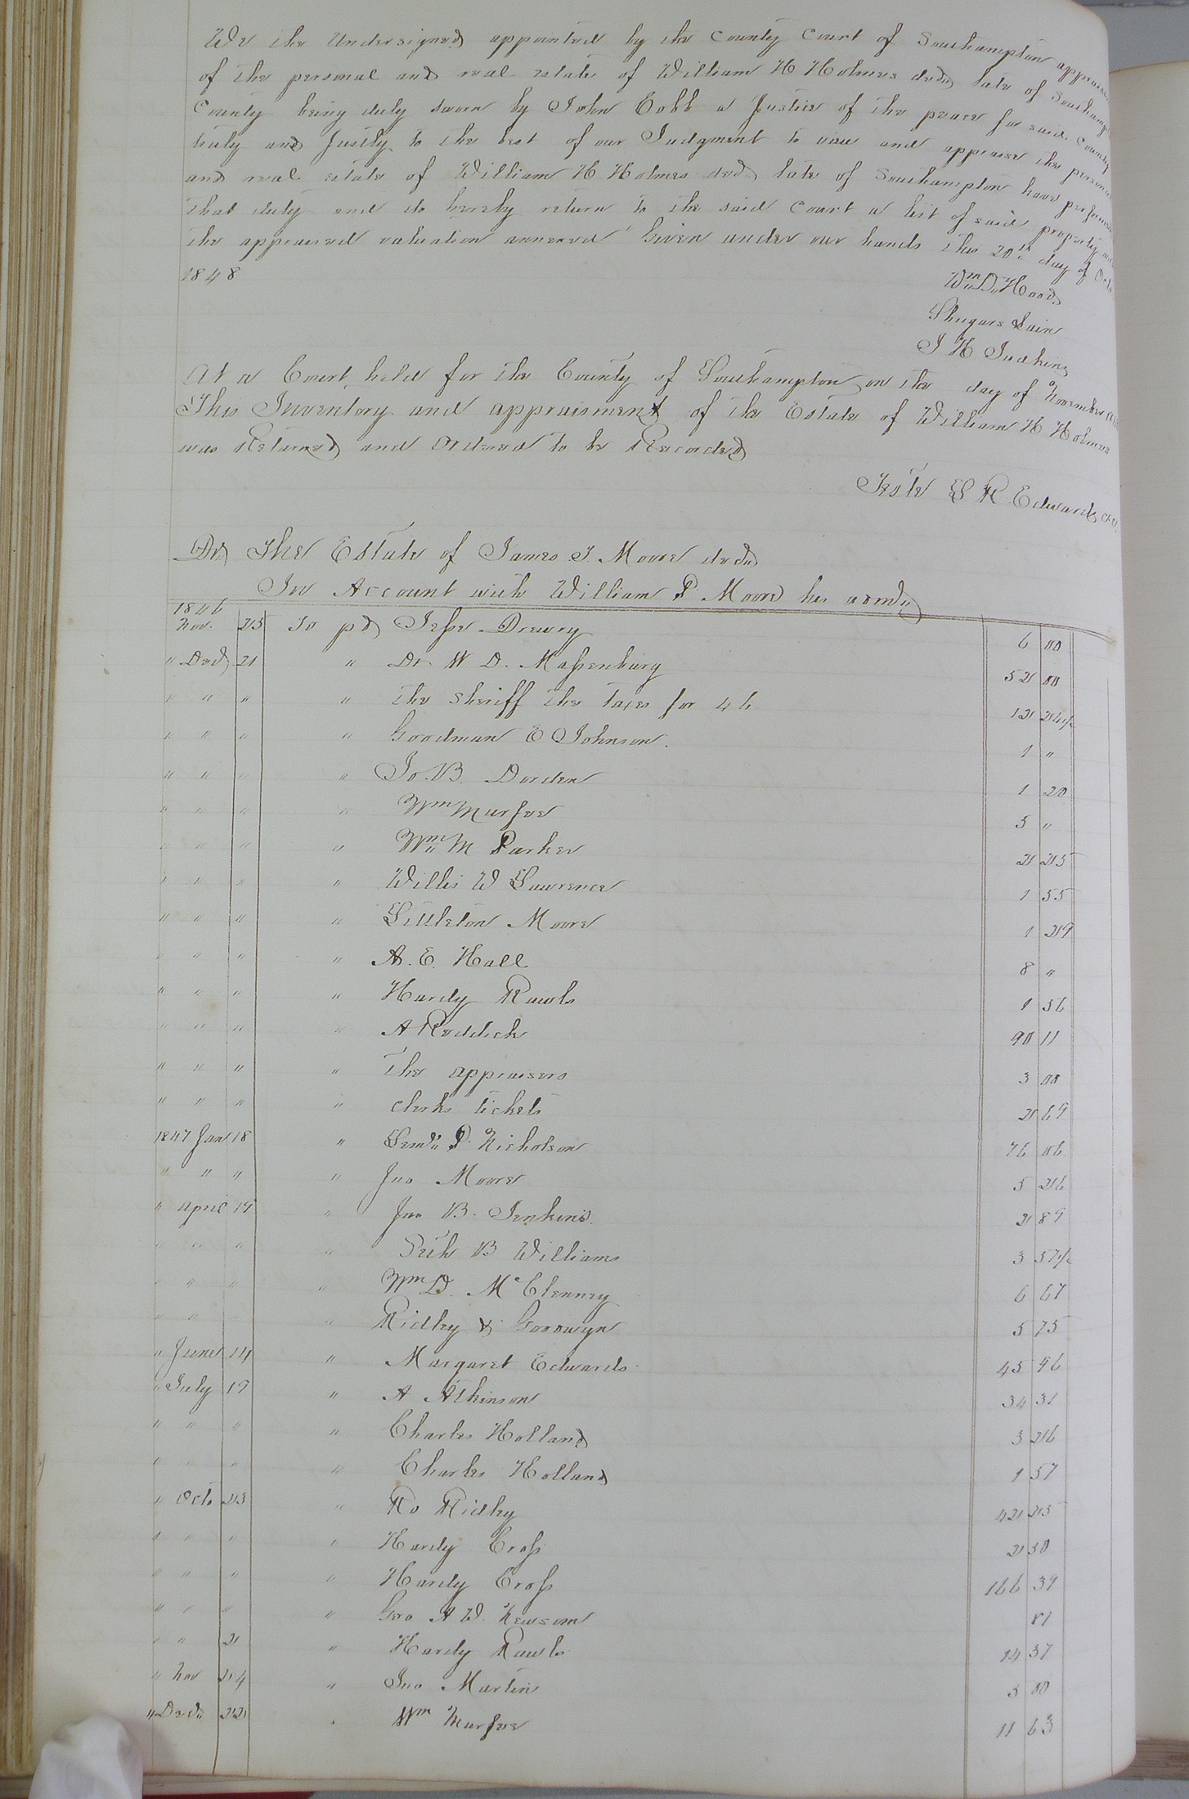 We the Undersigned appointed by the County Court of Southampton appraisers
of the personal and real estate of William H Holmes decd late of Southampton
County being duly sworn by John Cobb a Justice of the peace for said County
truly and Justly to the best of our Judgment to view and appraise the personal
and real estate of William H Holmes decd late of Southampton have performed
that duty and do hereby return to the said Court a list of said property with
the appraised valuation annexed Given under our hands this 20th day of Octo
1848
Wm D. Hood
Shugars Lain
J H Judkins
At a Court held for the County of Southampton on the day of November
This Inventory and appraisment of the Estate of William H Holmes
was Returned and Ordered to be Recorded
Teste L R Edwards
Dr The Estate of James J. Moore decd
In Account with William P Moore his admr
1846
Nov. 25 To pd Jesse Drewry 6 00
" Decr 21 " Dr. W D. Massenburg 52 00
" " " " The Sheriff the taxes for 46 12
" " " " Goodman E Johnson. 1 "
" " " " Jo. B. Darden 1 20
" " " " Wm Murfee 5 "
" " " " Wm M Parker 2 25
" " " " Willis W Lawrence 1 55
" " " " Littleton Moore 1 29
" " " " A. E. Hall 8 "
" " " " Hardy Rawls 1 56
" " " " A Reddick 90 11
" " " " The appraisers 3 00
" " " " clerks tickets 2 69
1847 Jan 18 " P. Nicholson 76 06
" " " " Jno Moore 5 26
" April 19 " Jno B. Jenkins. 2 89
" " " " B Williams 3 37½
" " " " Wm D. McClenney 6 67
" " " " Ridley & Goodwyn 5 75
" June 14 " Margaret Edwards 45 96
" July 19 " A Atkinson 34 31
" " " " Charles Holland 3 26
" " " " Charles Holland 1 57
" Oct 23 " Ro Ridley 42 25
" " " " Hardy Cross 2 50
" " " " Hardy Cross 166 39
" " " " Geo A W. Newsom 81
" " 2 " Hardy Rawls 14 37
" Nov 24 " Jno Martin 5 00
" Decr 22 " Wm Murfee 11 63